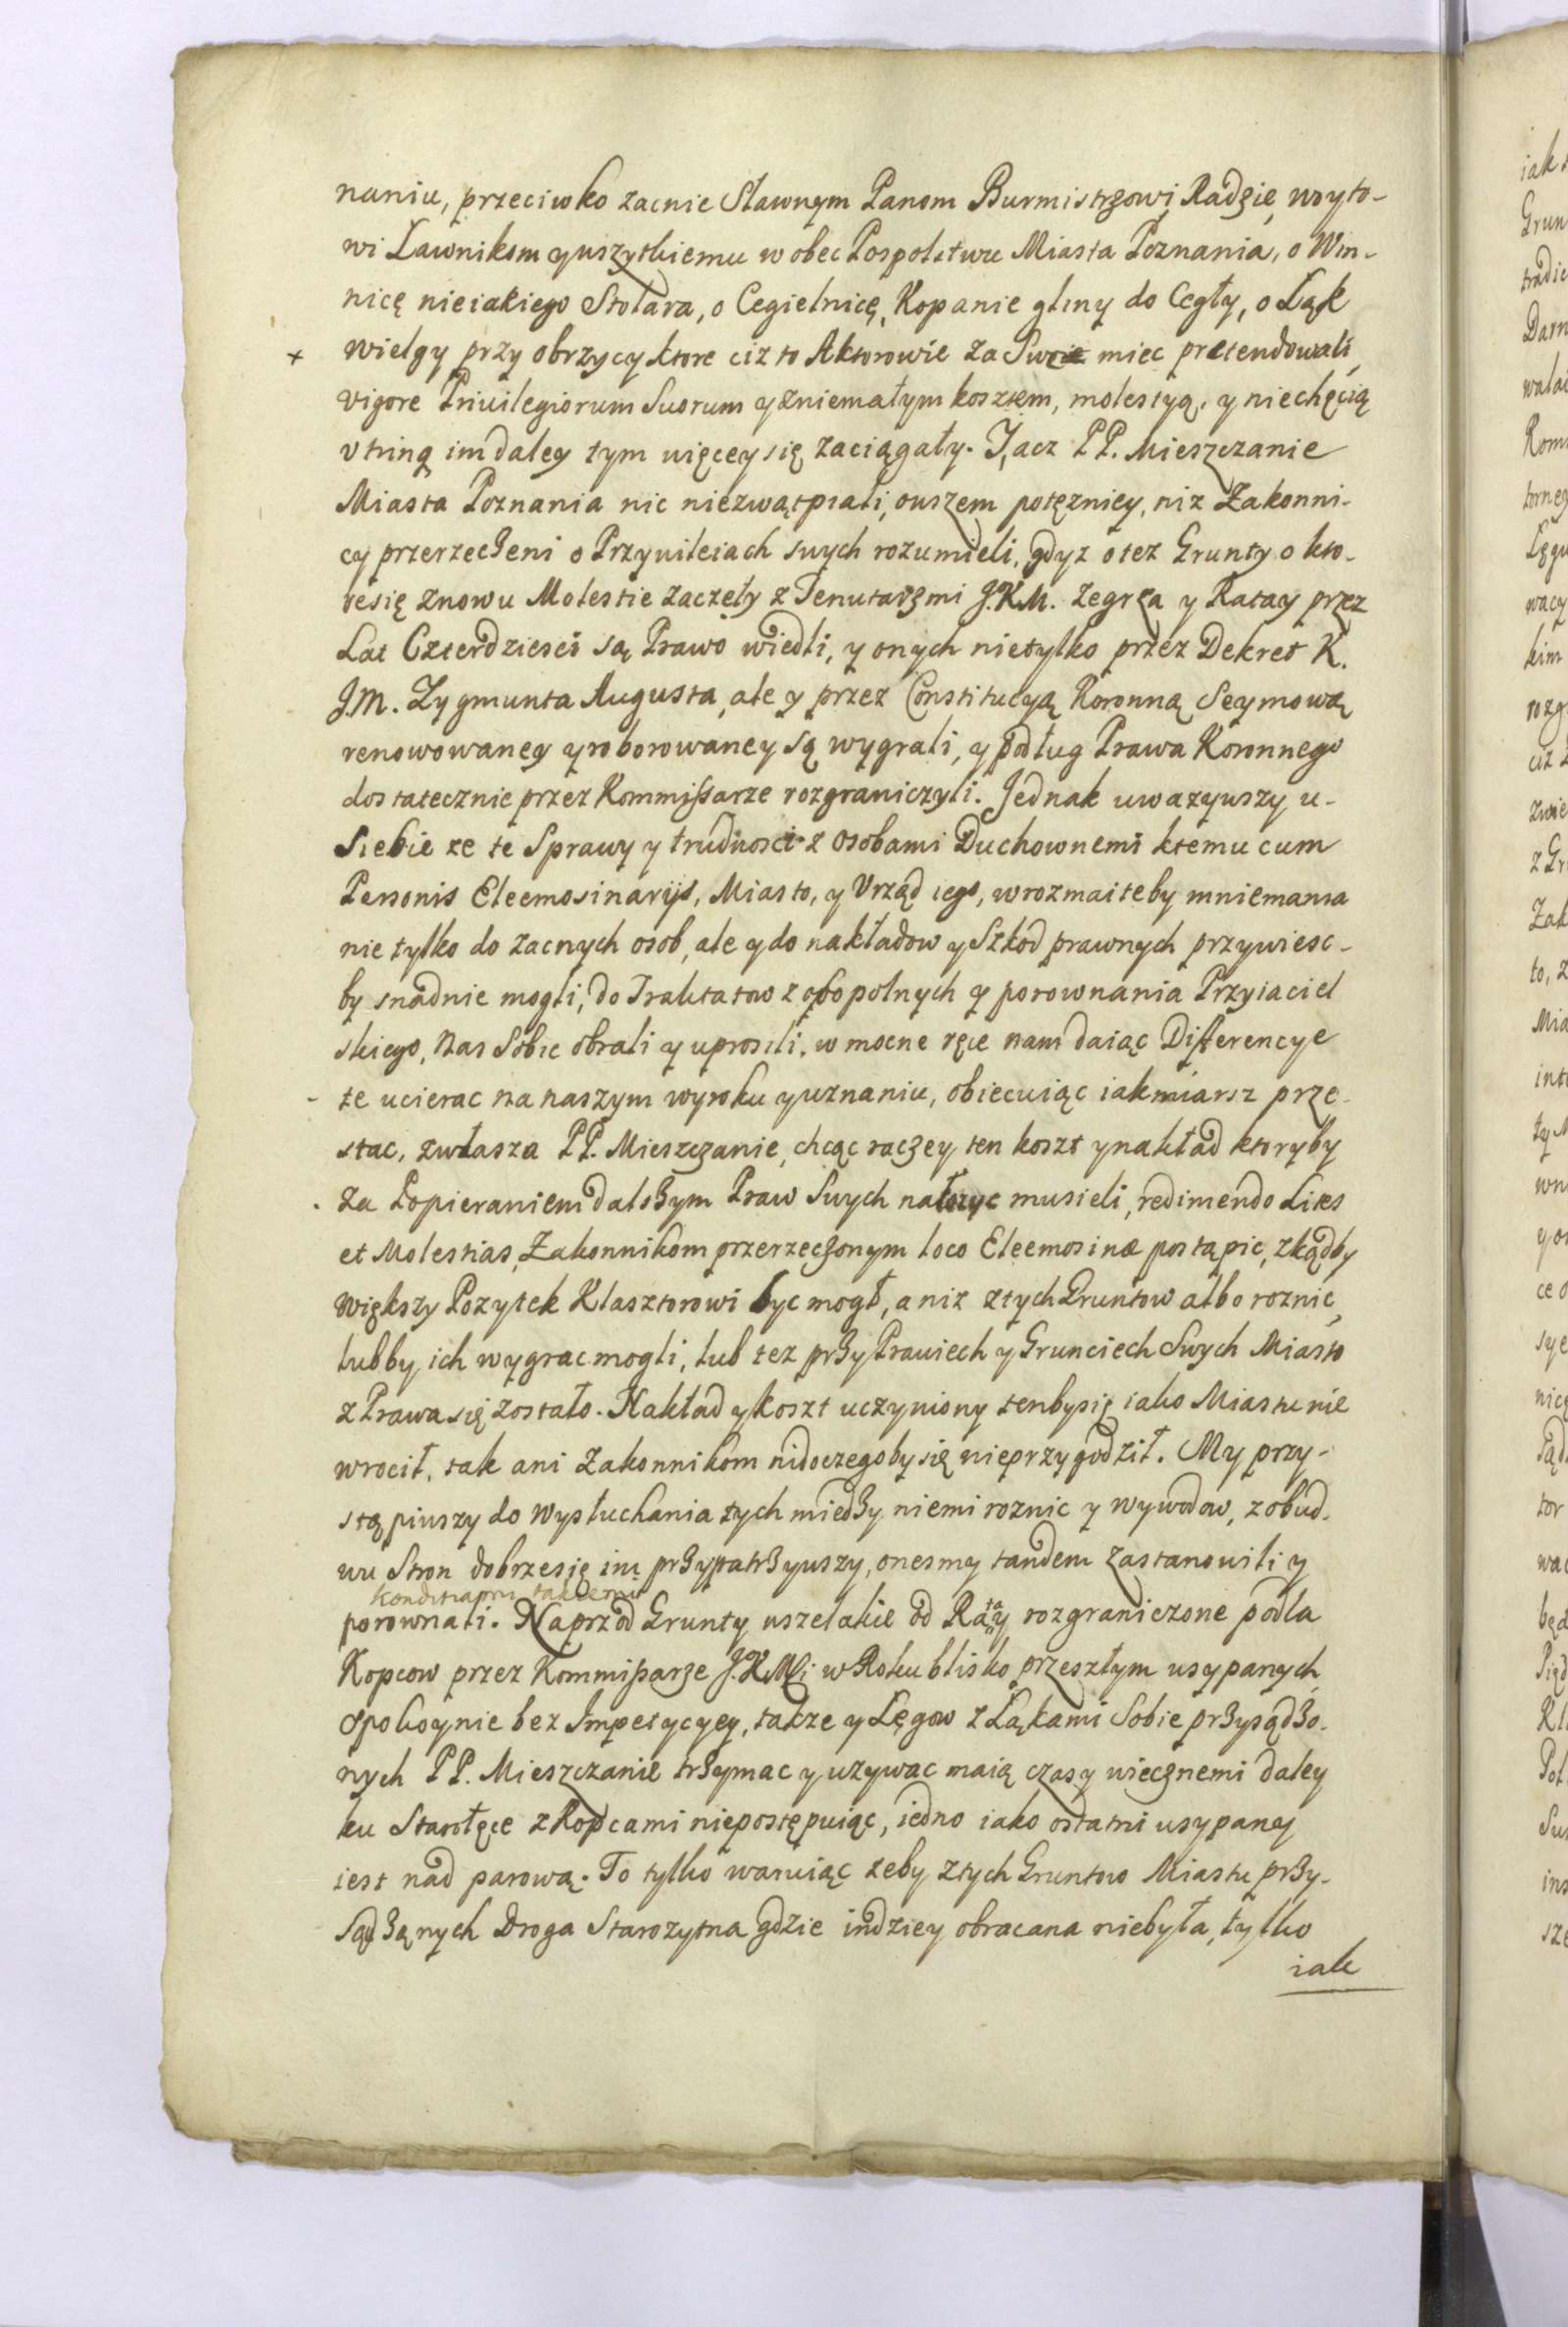 naniu, przeciwko zacnie Sławnym Panom Burmistrzowi Radzie, woyto-
wi Ławnikom y wszytkiemu w obec Pospolstwu Miasta Poznania, o Win-
nicę nieiakiego Stolara, o Cegielnicę, Kopanie gliny do Cegły, o Łąk
wielgy przy obrzycy ktore ciz to Aktorowie za Swoie miec pretendowali,
vigore Priuilegiorum Suorum y zniemałym kosztem, molestyą, y niechęcią
vtrinq im daley tym więcey się zaciągały. I, acz PP. Mieszczanie
Miasta Poznania nic niezwątpiali, owszem potęzniey, niz Zakonni-
cy przerzeczeni o Przywileiach swych rozumieli, gdyz o tez Grunty o kto-
resię znowu Molestie zaczęły z Tenutarzmi J.K.M. Zegrza y Ratay przez
Lat Czterdziesci są Prawo wiedli, y onych nietylko przez Dekret K.
J.M. Zygmunta Augusta, ale y przez Constitucyą Koronną Seymową
renowowaney y roborowaney są wygrali, y podług Prawa Koronnego
dostatecznie przez Kommissarze rozgraniczyli. Jednak uwazywszy u-
Siebie ze te Sprawy y trudnosci z osobami Duchownemi ktemu cum
Personis Eleemosinarijs, Miasto, y Vrząd iego, w rozmaiteby mniemania
nie tylko do zacnych osob, ale y do nakładow y Szkod prawnych przywiesc-
by snadnie mogli, do Traktatow z obopolnych y porownania Przyiaciel
skiego, Nas Sobie obrali y uprosili, w mocne ręce nam daiąc Differencye
te ucierac na naszym wyroku y uznaniu, obiecuiąc iakmiarsz prze-
stac, zwłasza PP. Mieszczanie, chcąc raczey ten koszt y nakład ktoryby
Za Popieraniem dalszym Praw Swych nałozyc musieli, redimendo Lites
et Molestias, Zakonnikom przerzeczonym loco Eleemosinæ postąpic, zkądby
większy Pozytek Klasztorowi byc mogł, a niz ztych Gruntow albo roznic,
lubby ich wygrac mogli, lub tez przy Prawiech y Grunciech Swych Miasto
z Prawa się zostało. Nakład y koszt uczyniony tenbysię iako Miastu nie
wrocił, tak ani Zakonnikom nidoczegoby się nieprzygodził. My przy-
stąpiwszy do wysłuchania tych miedzy niemi roznic y wywodow, z obud-
wu Stron dobrzesię im przypatrzywszy, onesmy tandem zastanowili y
Konditiami takiemi
porownali. Naprzod Grunty wszelakie od Ratay rozgraniczone podla
Kopcow przez Kommissarze J.K.Mci w Roku blisko przeszłym usypanych
Spokoynie bez Impetycyey, takze y Łęgow z Łąkami Sobie przysądzo-
nych PP. Mieszczanie trzymac y uzywac maią czasy wiecznemi daley
ku Starołęce z Kopcami niepostępuiąc, iedno iako ostatni usypany
iest nad parową. To tylko waruiąc zeby ztych Gruntow Miastu przy-
sądzanych Droga Starozytna gdzie indziey obracana niebyła, tylko
iak